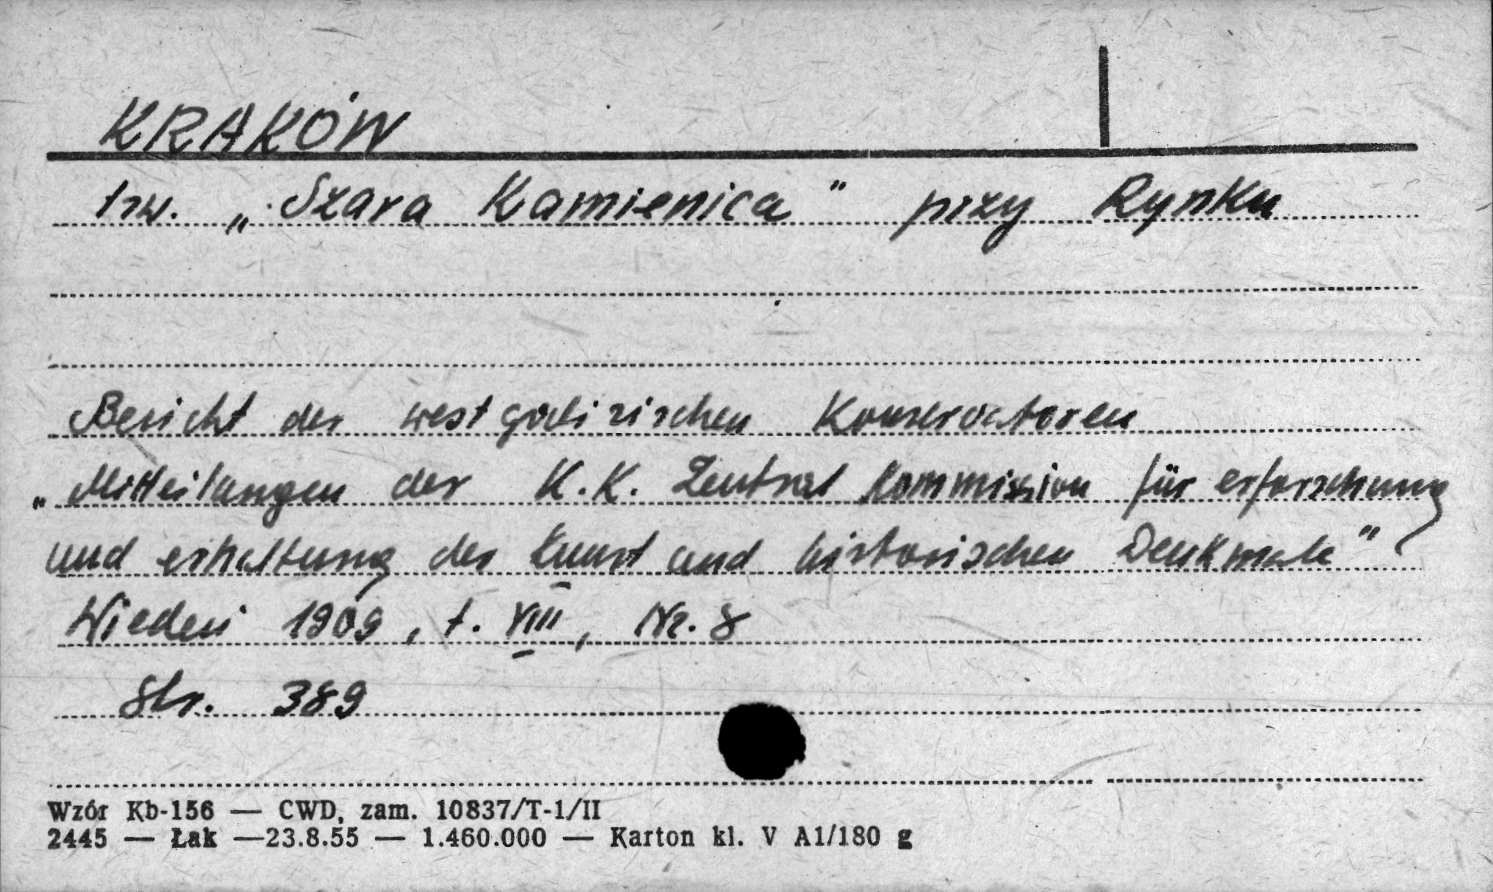 KRAKÓW
tzw. „Szara Kamienica" przy Rynku
Bericht der westgalizischen Konservatoren
„Mitteilungen der K.K. Zentral Kommission für erforschung
und erhaltung der Kunst und historischen Denkmale"
Wiedeń 1909, t. VIII, Nr. 8
Str. 389
Wzór Kb-156 — CWD, zam. 10837/T-1/II
2445 — Łak —23.8.55 — 1.460.000 — Karton kl. V A1/180 g